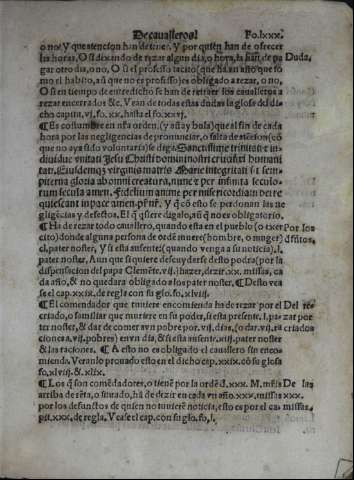 De caualleros. Fo. lxxx.
o no. Y que atencion han de tener. Y por quiẽ han de ofrecer
las horas. O si dexando de rezar algun dia, o hora, la han de pa Duda,
gar otro dia, o no, O si el professo tacito (que ha vn año que to
mo el habito, aũ que no es professo) es obligado a rezar, o no,
O si en tiempo de entredicho se han de retraer los caualleros a
rezar encerrados &c. Vean de todas estas dudas la glosa del di
cho capitu. vj. fo. xx. hasta el fo. xxvj.
¶ Es costumbre en nrã orden, (y aũ ay bula) que al fin de cada
hora por las negligencias de pronunciar, o falta de atẽcion (cõ
que no aya sido voluntaria) se diga. Sanctissime trinitati & in
diuidue vnitati Jesu Christi domini nostri crucifixi humani
tati, Eiusdemq̃ virginis matris Marie integritati sit sem-
piterna gloria ab omni creatura, nunc & per infinita seculo-
rum secula amen. Fidelium anime per misericordiam dei re
quiescant in pace amen. pr̃ nr̃. Y q̃ cõ esto se perdonan las ne
gligẽcias y defectos. El q̃ q̃siere digalo, aũ q̃ no es obligatorio.
¶ Ha de rezar todo cauallero, quando esta en el pueblo (o exer Por los
cito) donde alguna persona de ordẽ muere (hombre, o muger) difũtos,
c l, pater noster, Y si esta ausente (quando venga a su noticia), l.
pater noster, Aun que si quiere descuydarse desto podra (por la
dispensacion del papa Clemẽte. vij.) hazer, dezir. xx. missas, ca
da año, & no quedara obligado a los pater noster. ¶ Desto vea
se el cap. xxix. de regla con su glo. fo. xlviij.
¶ El comendador que tuuiere encomienda ha de rezar por el Del re-
criado, o familiar que muriere en su poder, si esta presente. l. pa-zar por
ter noster, & dar de comer a vn pobre por. vij. dias, (o dar. vij. ra criados
ciones a, vij. pobres) en vn dia, & si esta ausente. xiij. pater noster
& las raciones. ¶ A esto no es obligado el cauallero sin enco-
mienda. Veran lo prouado esto en el dicho cap. xxix. cõ su glosa
fo. xlviij. & xlix.
¶ Los q̃ son comẽdadores, o tienẽ por la ordẽ d. xxx. M. mr̃s De las
arriba de rẽta, o situado, hã de dezir en cada vn año. xxx. missas xxx.
por los defunctos de quien no tuuiere noticia, esto es por el ca- missas.
pit. xxx. de regla. Vease el cap. con su glo. fo, l.